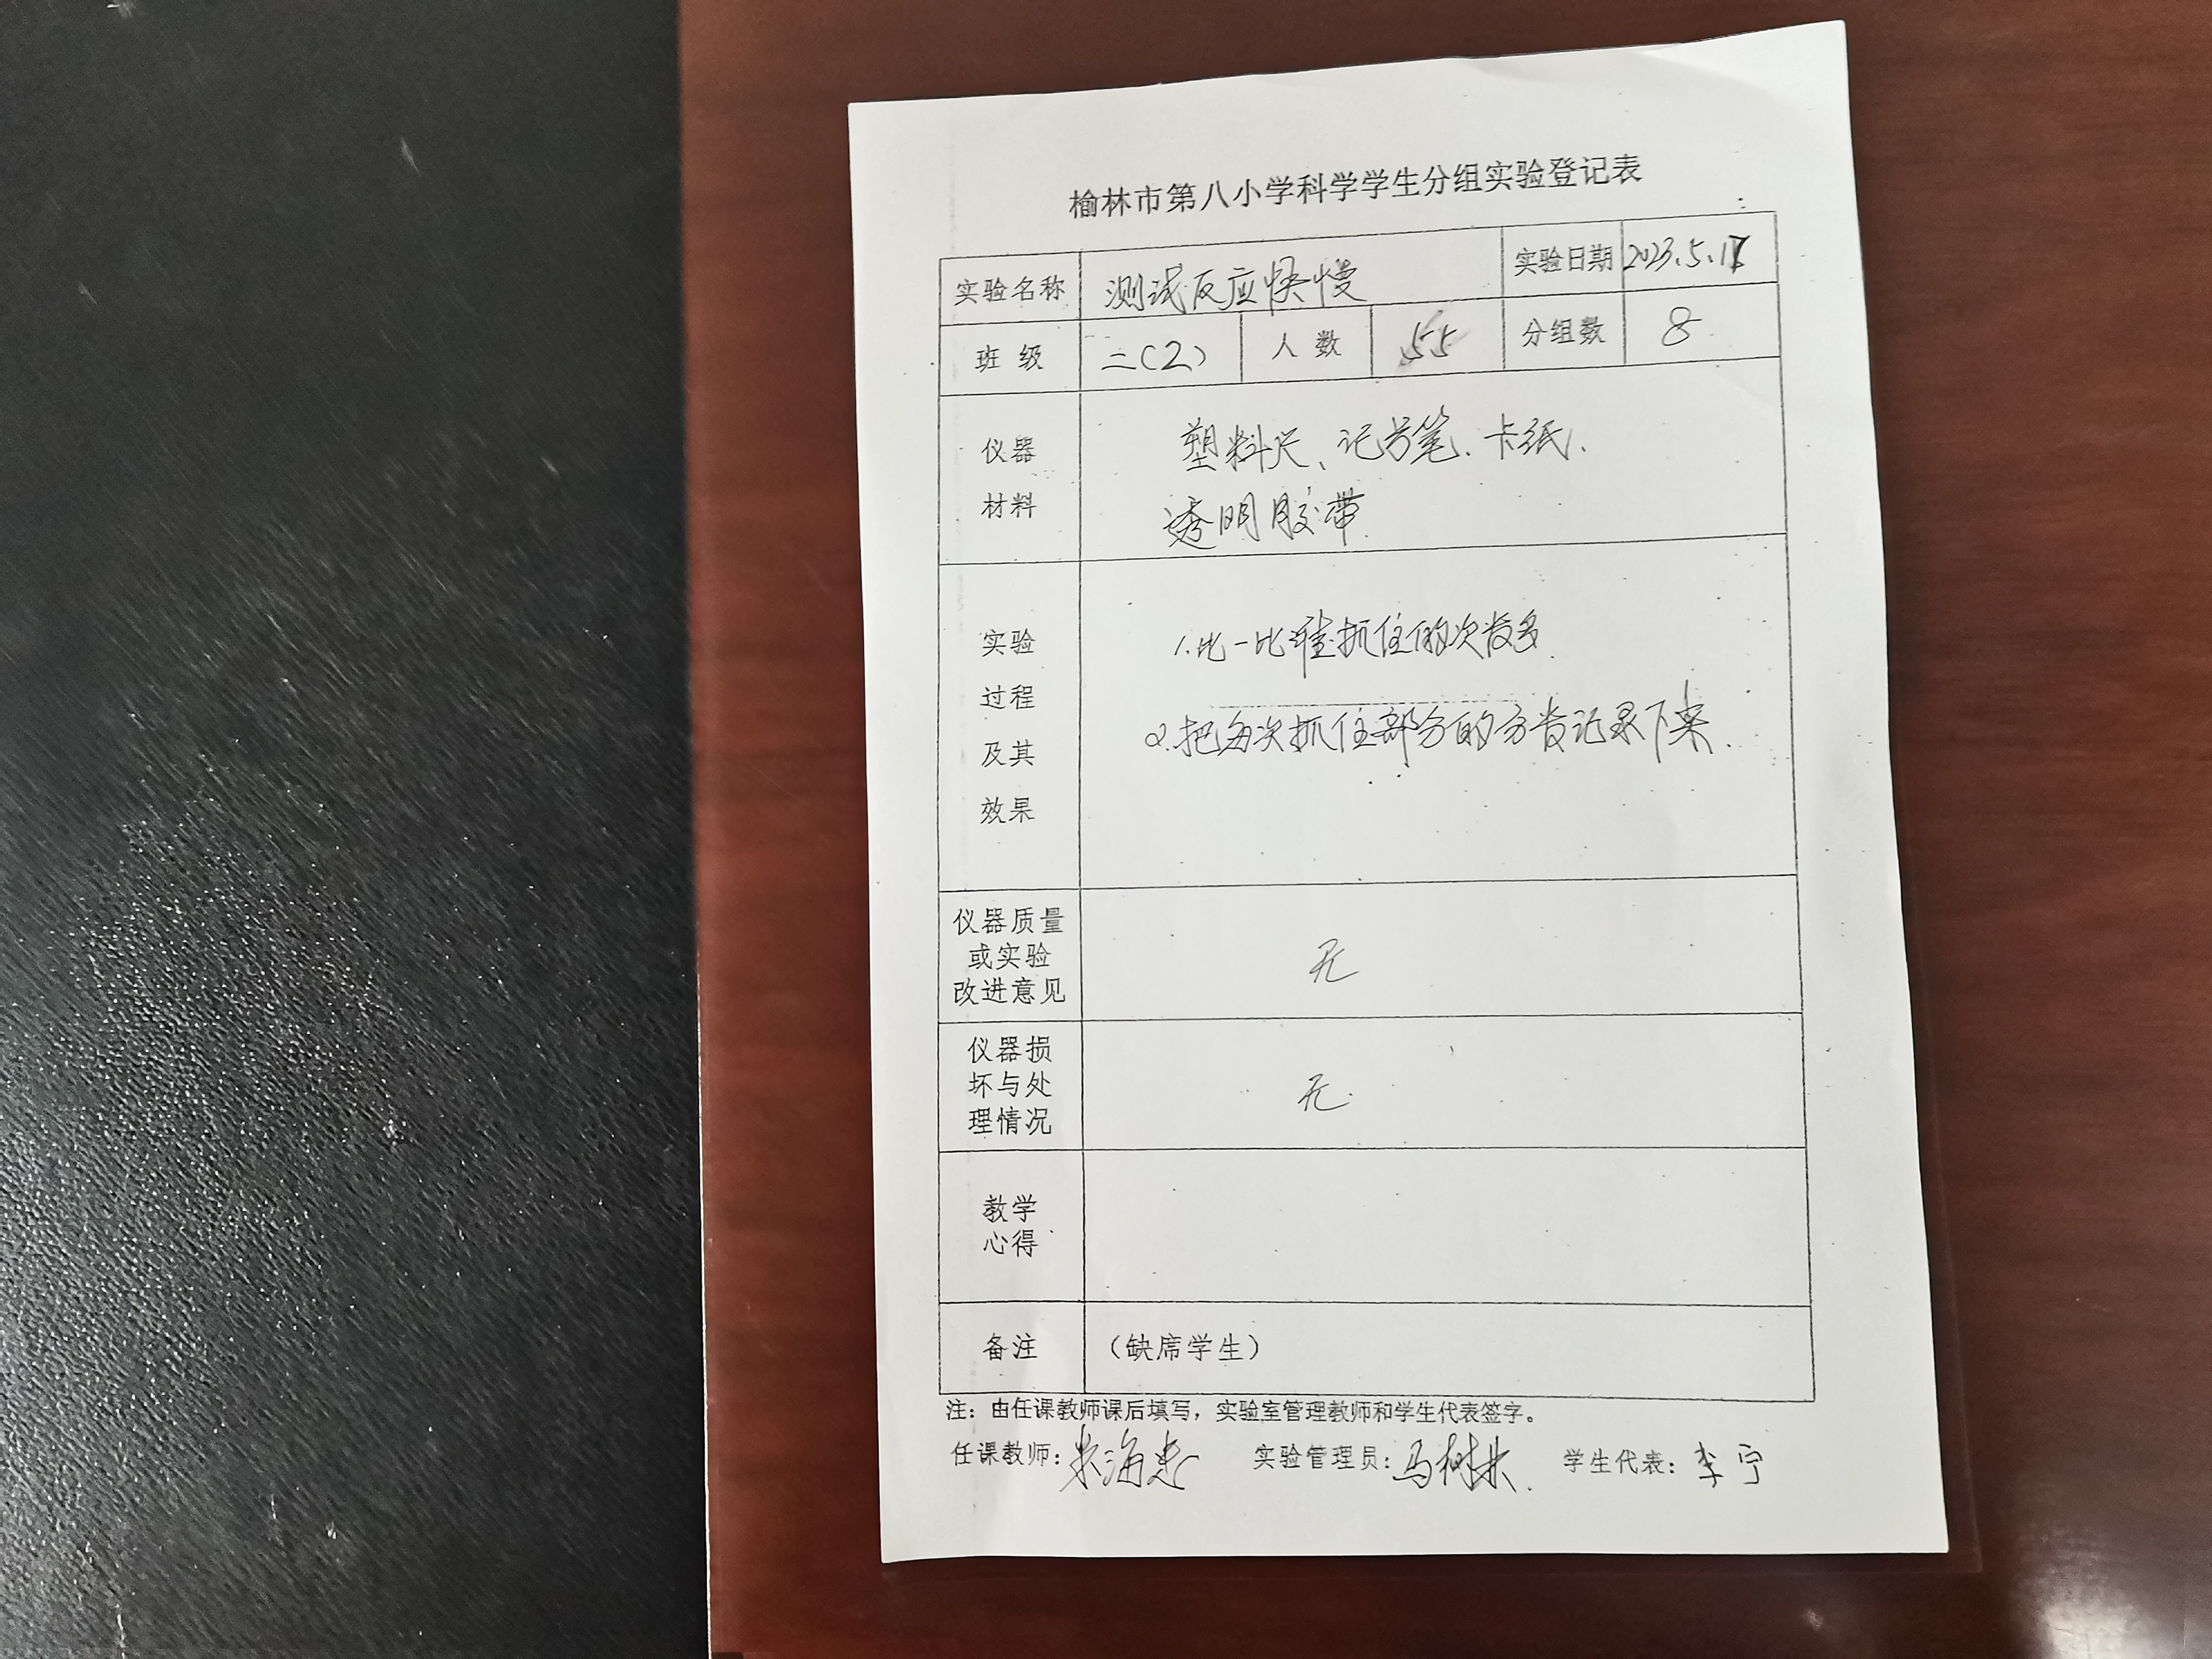 榆林市第八小学科学学生分组实验登记表
实验名称 测试反应快慢 实验日期 2023.5.17
班 级 二(2) 人 数 55 分组数 8
仪器
材料
塑料尺、记号笔、卡纸、
透明胶带
实验
过程
及其
效果
1.比一比谁抓住的次数多
2.把每次抓住部分的分数记录下来.
仪器质量
或实验
改进意见
无
仪器损
坏与处
理情况
无.
教学
心得
备注 (缺席学生)
注：由任课教师课后填写，实验室管理教师和学生代表签字。
任课教师: 实验管理员: 马树林. 学生代表: 李宁